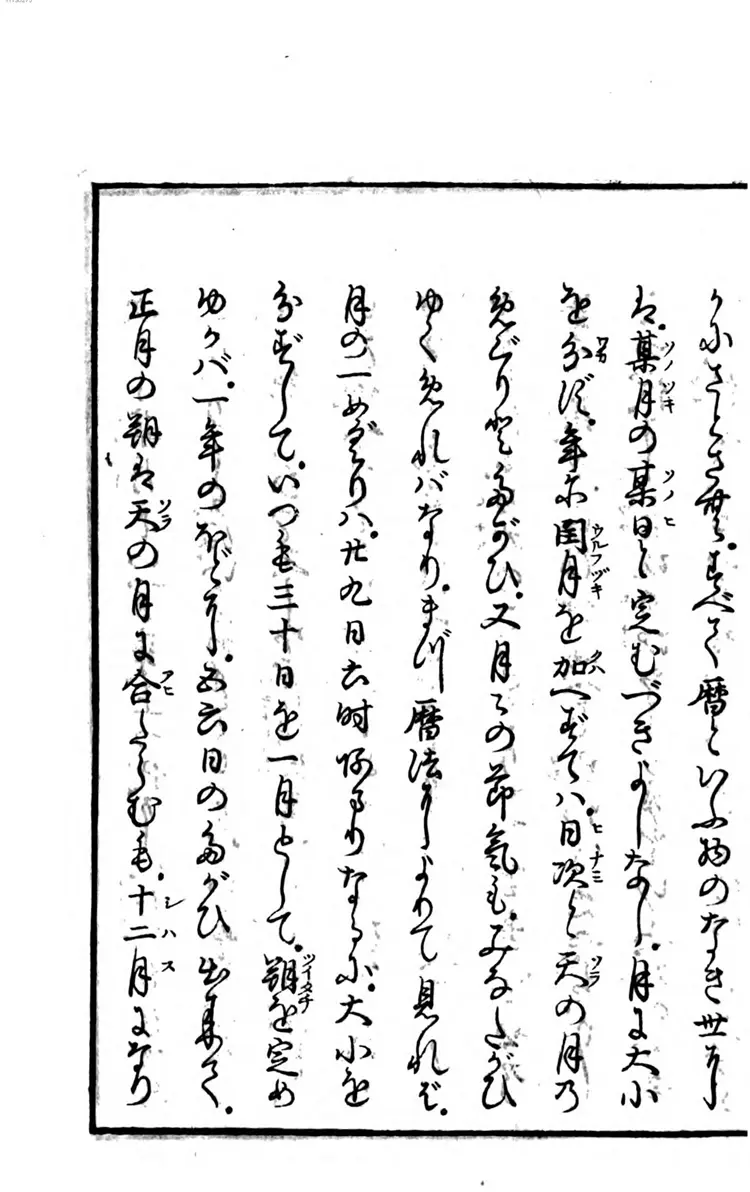 かにさとさむ。すべて暦といふ物のなき世に
は。某月の某日と定むべきよしなし。月に大小
を分ず。年に閏月を加へずては。日次と天の月の
めぐりとたがひ。又月々の節気も。みなたがひ
ゆくめればなり。まづ暦法によりて見れば。
月の一めぐりハ。廿九日六時あまりなるに。大小を
分ずして。いつも三十日を一月として。朔を定め
ゆかバ。一年のほどに。五六日のたがひ出来て。
正月の朔は天の月に合たらむも。十二月になり